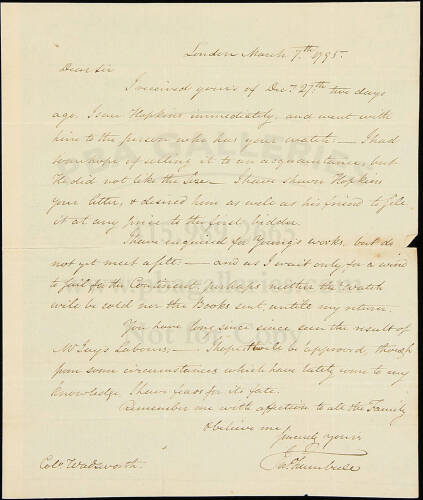 London March 7.th 1795.
Dear Sir
I received yours of Dec.r 27.th two days
ago. I saw Hopkins immediately, and went with
him to the person who has your watch — I had
some hope of selling it to an acquaintance, but
He did not like the Size — I have shewn Hopkins
your letter, & desired him as well as his friend to sell
it at any price to the first bidder.
I have enquired for Young's works, but do
not yet meet a sett — and as I wait only for a wind
to sail for the Continent, perhaps neither the Watch
will be sold nor the Books sent, untill my return.
You have long since since seen the result of
Mr Jay's Labours; — I hope it will be approved, though
from some circumstances which have lately come to my
knowledge I have fears for its fate.
Remember me with affection to all the Family
& believe me
Sincerely yours
Jn.o Trumbull
Col.o Wadsworth.
GALLERIES
415.989.2665
Not for Copy